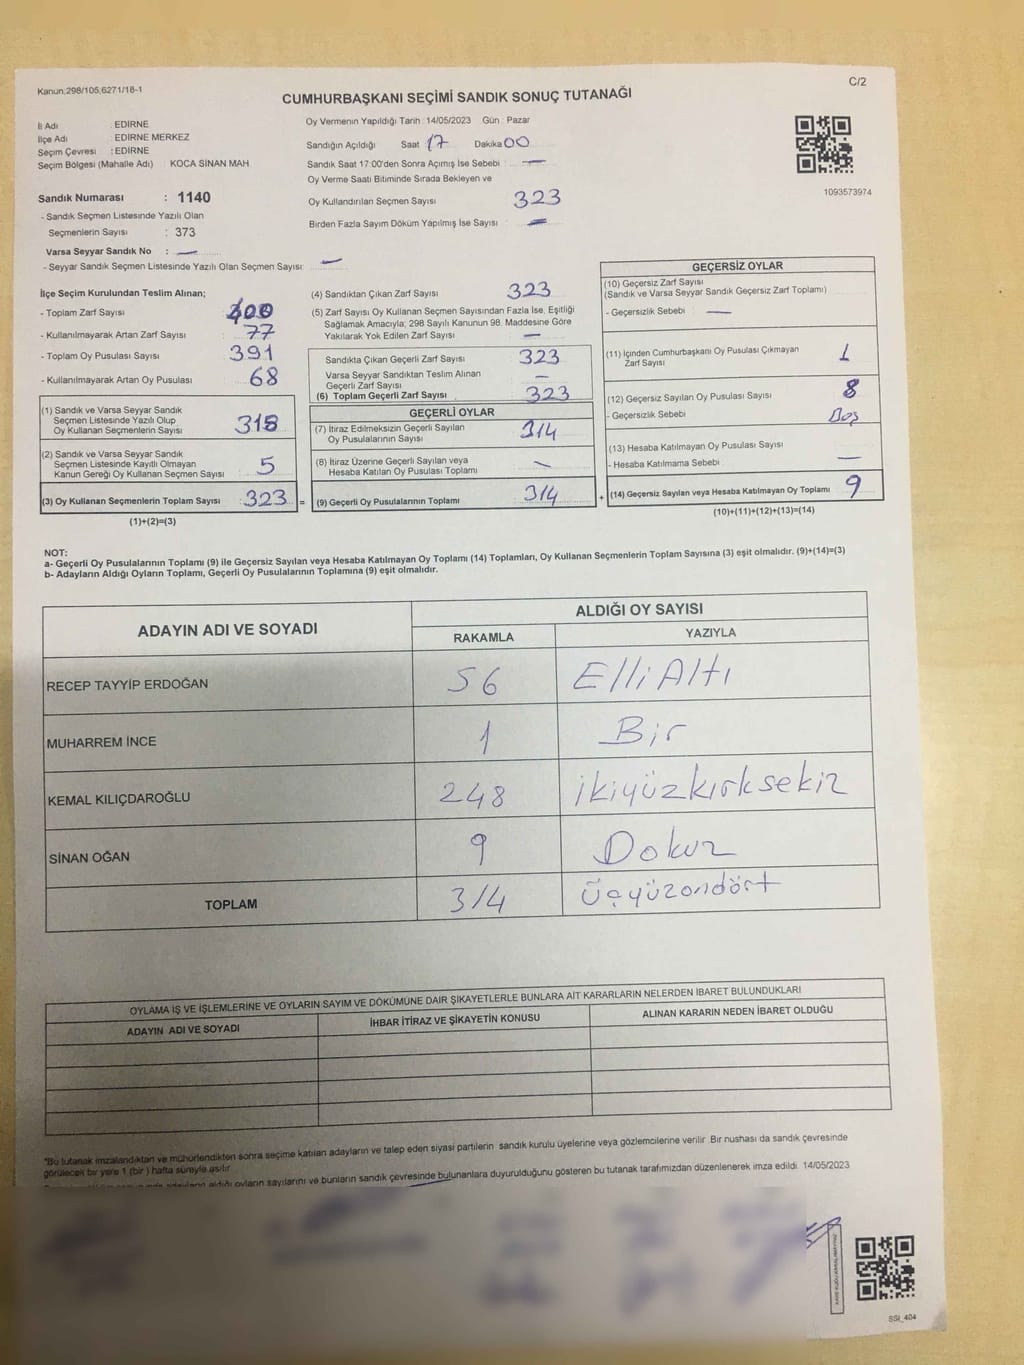 Kanun;298/105;6271/18-1
C/2
CUMHURBAŞKANI SEÇİMİ SANDIK SONUÇ TUTANAĞI
İl Adı : EDİRNE
İlçe Adı : EDİRNE MERKEZ
Seçim Çevresi : EDİRNE
Seçim Bölgesi (Mahalle Adı) : KOCA SİNAN MAH
Sandık Numarası : 1140
- Sandık Seçmen Listesinde Yazılı Olan
Seçmenlerin Sayısı : 373
Varsa Seyyar Sandık No : —
- Seyyar Sandık Seçmen Listesinde Yazılı Olan Seçmen Sayısı: —
Oy Vermenin Yapıldığı Tarih : 14/05/2023 Gün : Pazar
Sandığın Açıldığı Saat 17 Dakika 00
Sandık Saat 17:00'den Sonra Açımış İse Sebebi : —
Oy Verme Saati Bitiminde Sırada Bekleyen ve
Oy Kullandırılan Seçmen Sayısı 323
Birden Fazla Sayım Döküm Yapılmış İse Sayısı : —
1093573974
İlçe Seçim Kurulundan Teslim Alınan;
- Toplam Zarf Sayısı : 400
- Kullanılmayarak Artan Zarf Sayısı : 77
- Toplam Oy Pusulası Sayısı : 391
- Kullanılmayarak Artan Oy Pusulası : 68
(1) Sandık ve Varsa Seyyar Sandık
Seçmen Listesinde Yazılı Olup
Oy Kullanan Seçmenlerin Sayısı 318
(2) Sandık ve Varsa Seyyar Sandık
Seçmen Listesinde Kayıtlı Olmayan
Kanun Gereği Oy Kullanan Seçmen Sayısı 5
(3) Oy Kullanan Seçmenlerin Toplam Sayısı : 323 =
(1)+(2)=(3)
(4) Sandıktan Çıkan Zarf Sayısı 323
(5) Zarf Sayısı Oy Kullanan Seçmen Sayısından Fazla İse, Eşitliği
Sağlamak Amacıyla; 298 Sayılı Kanunun 98. Maddesine Göre
Yakılarak Yok Edilen Zarf Sayısı —
Sandıkta Çıkan Geçerli Zarf Sayısı 323
Varsa Seyyar Sandıktan Teslim Alınan
Geçerli Zarf Sayısı —
(6) Toplam Geçerli Zarf Sayısı 323
GEÇERLİ OYLAR
(7) İtiraz Edilmeksizin Geçerli Sayılan
Oy Pusulalarının Sayısı 314
(8) İtiraz Üzerine Geçerli Sayılan veya
Hesaba Katılan Oy Pusulası Toplamı —
(9) Geçerli Oy Pusulalarının Toplamı 314 +
GEÇERSİZ OYLAR
(10) Geçersiz Zarf Sayısı
(Sandık ve Varsa Seyyar Sandık Geçersiz Zarf Toplamı)
- Geçersizlik Sebebi : —
(11) İçinden Cumhurbaşkanı Oy Pusulası Çıkmayan
Zarf Sayısı 1
(12) Geçersiz Sayılan Oy Pusulası Sayısı 8
- Geçersizlik Sebebi Boş
(13) Hesaba Katılmayan Oy Pusulası Sayısı
- Hesaba Katılmama Sebebi : —
(14) Geçersiz Sayılan veya Hesaba Katılmayan Oy Toplamı 9
(10)+(11)+(12)+(13)=(14)
NOT:
a- Geçerli Oy Pusulalarının Toplamı (9) ile Geçersiz Sayılan veya Hesaba Katılmayan Oy Toplamı (14) Toplamları, Oy Kullanan Seçmenlerin Toplam Sayısına (3) eşit olmalıdır. (9)+(14)=(3)
b- Adayların Aldığı Oyların Toplamı, Geçerli Oy Pusulalarının Toplamına (9) eşit olmalıdır.
ADAYIN ADI VE SOYADI
ALDIĞI OY SAYISI
RAKAMLA YAZIYLA
RECEP TAYYİP ERDOĞAN 56 Elli Altı
MUHARREM İNCE 1 Bir
KEMAL KILIÇDAROĞLU 248 ikiyüzkırksekiz
SİNAN OĞAN 9 Dokuz
TOPLAM 314 Üçyüzondört
OYLAMA İŞ VE İŞLEMLERİNE VE OYLARIN SAYIM VE DÖKÜMÜNE DAİR ŞİKAYETLERLE BUNLARA AİT KARARLARIN NELERDEN İBARET BULUNDUKLARI
ADAYIN ADI VE SOYADI İHBAR İTİRAZ VE ŞİKAYETİN KONUSU ALINAN KARARIN NEDEN İBARET OLDUĞU
*Bu tutanak imzalandıktan ve mühürlendikten sonra seçime katılan adayların ve talep eden siyasi partilerin sandık kurulu üyelerine veya gözlemcilerine verilir. Bir nushası da sandık çevresinde
görülecek bir yere 1 (bir) hafta süreyle asılır.
aldığı oyların sayılarını ve bunların sandık çevresinde bulunanlara duyurulduğunu gösteren bu tutanak tarafımızdan düzenlenerek imza edildi. 14/05/2023
SSI_404